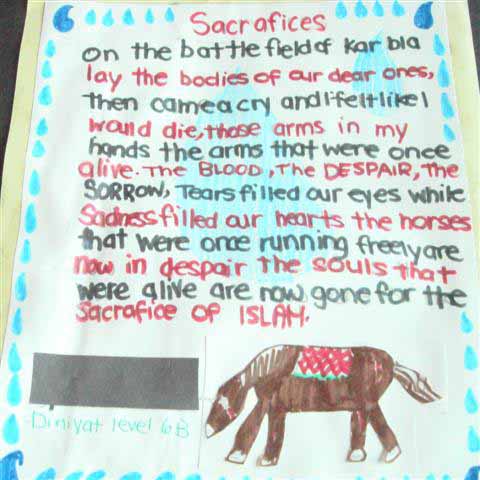 Sacrafices
on the battle field of Kar bla
lay the bodies of our dear ones,
then came a cry and I felt like I
would die, those arms in my
hands the arms that were once
alive. The BLOOD, The DESPAIR, The
SORROW, Tears filled our eyes while
Sadness filled our hearts the horses
that were once running freely are
now in despair the souls that
were alive are now gone for the
Sacrafice OF ISLAM.
-Diniyat level 6B